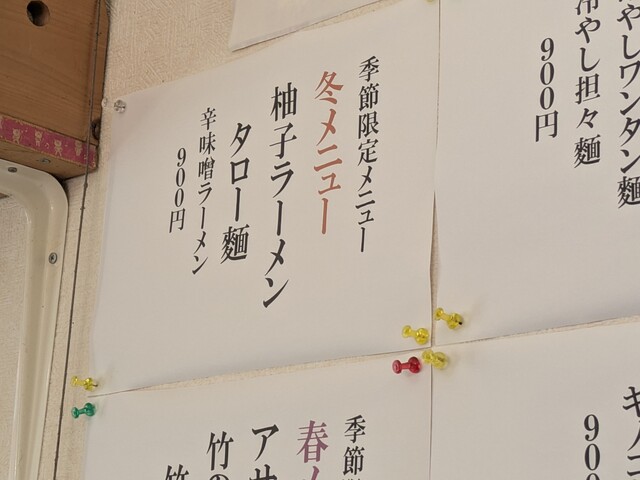 季節限定メニュー
冬メニュー
柚子ラーメン
タロー麺
辛味噌ラーメン
900円
冷やしワンタン麺
冷やし担々麺
900円
季節
春
アサ
竹の
竹
キノコ
90